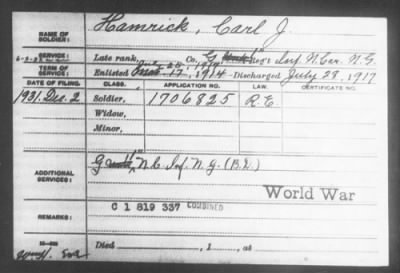 NAME OF SOLDIER: Hamrick, Carl J.
SERVICE: Late rank, Co. G Reg't Inf. N. Car. N. G.
TERM OF SERVICE: July 28, 1917
Enlisted Nov. 17, 1914 Discharged July 28, 1917
DATE OF FILING. CLASS. APPLICATION NO. LAW. CERTIFICATE NO.
1931. Dec. 2 Soldier, 1706825 R.E.
Widow,
Minor,
ADDITIONAL SERVICES: G N.C. Inf. N. G. (B.L.)
World War
REMARKS: C 1 819 337 COMBINED
Died , 1 , at